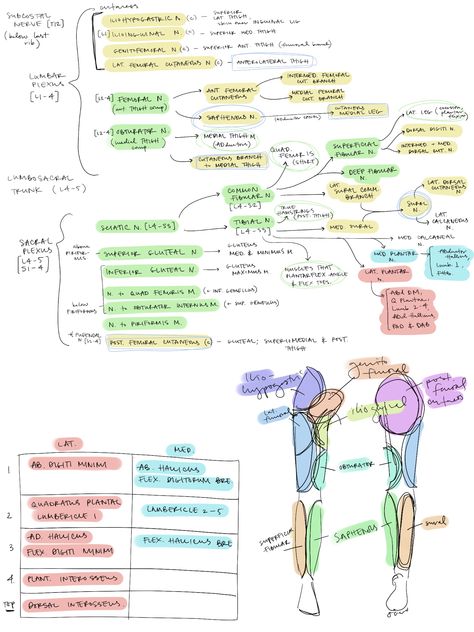 SUBCOSTAL NERVE [T12]
(below last rib)
cutaneous
ILIOHYPOGASTRIC N. (C) - SUPERIOR LAT THIGH,
[L1] ILIOINGUINAL N. (C) - SUPERIOR MED THIGH
GENITOFEMORAL N. (C) - SUPERIOR ANT THIGH
LAT. FEMORAL CUTANEOUS N. (C) - ANTEROLATERAL THIGH
LUMBAR PLEXUS [L1-4]
[L2-4] FEMORAL N.
(ant thigh comp)
ANT FEMORAL CUTANEOUS
INTERMED FEMORAL CUT BRANCH
MEDIAL FEMORAL CUT. BRANCH
SAPHENOUS N.
CUTANEOUS MEDIAL LEG
[L2-4] OBTURATOR N.
(medial thigh comp)
MEDIAL THIGH M. (ADductors)
CUTANEOUS BRANCH TO MEDIAL THIGH
QUAD. FEMORIS (SHORT)
SUPERFICIAL FIBULAR N.
LAT LEG
DORSAL DIGITI N.
INTERMED + MED DORSAL CUT. N.
LUMBOSACRAL TRUNK (L4-5)
COMMON FIBULAR N. [L4-S2]
DEEP FIBULAR N.
LAT. SURAL COMM. BRANCH
LAT. DORSAL CUTANEOUS N.
SURAL N.
LAT CALCANEAL N.
SACRAL PLEXUS [L4-5] S1-4]
SCIATIC N. [L4-S3]
TIBIAL N. [L4-S3]
TRUE HAMSTRINGS (POST. THIGH)
MED SURAL
MED CALCANEAL N.
above PIRIFORMIS
SUPERIOR GLUTEAL N. - GLUTEUS MED & MINIMUS M.
INFERIOR GLUTEAL N. - GLUTEUS MAXIMUS M.
MUSCLES THAT PLANTARFLEX ANGLE & FLEX TOES.
MED PLANTAR
Abductor Hallucis, Lumb. 1, FHB.
LAT. PLANTAR
Abd DM, Q Plantae, Lumb 2-4, Add Hallucis, PAD & DAB
below PIRIFORMIS
N. to QUAD FEMORIS M. (+ INF GEMELLUS)
N. to OBTURATOR INTERNUS M. (+ SUP. GEMELLUS)
N. to PIRIFORMIS M.
POST. FEMORAL CUTANEOUS (C) - GLUTEAL, SUPEROMEDIAL & POST. THIGH
LAT. MED.
1 AB. DIGITI MINIMI AB. HALLICUS
FLEX. DIGITORUM BRE
2 QUADRATUS PLANTAE LUMBERICLE 2-5
LUMBERICLE 1
3 AD. HALLICUS FLEX. HALLICUS BRE
FLEX DIGITI MINIMI
4. PLANT. INTEROSSEUS
TOP DORSAL INTEROSSEUS
ilio-hypogastric
genito femoral
lat. femoral
post. femoral cutaneous
OBTURATOR
SUPERFICIAL FIBULAR
SAPHENOUS
sural